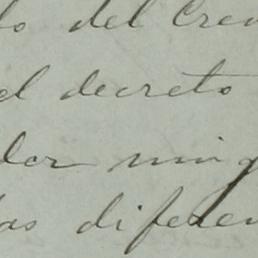 to del Cre
el decreto
dor nin
las diferen